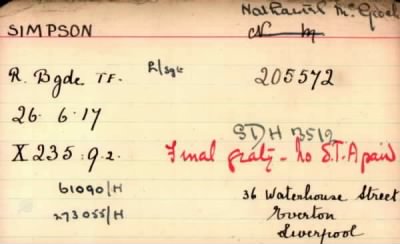 Nathaniel Mc
SIMPSON N M
R. Bgde TF. L/Sgt 205572
26. 6. 17
SDH
X235.9.2. Final graty - No S.T.A paid
61090/H 36 Waterhouse Street
273055/H Everton
Liverpool